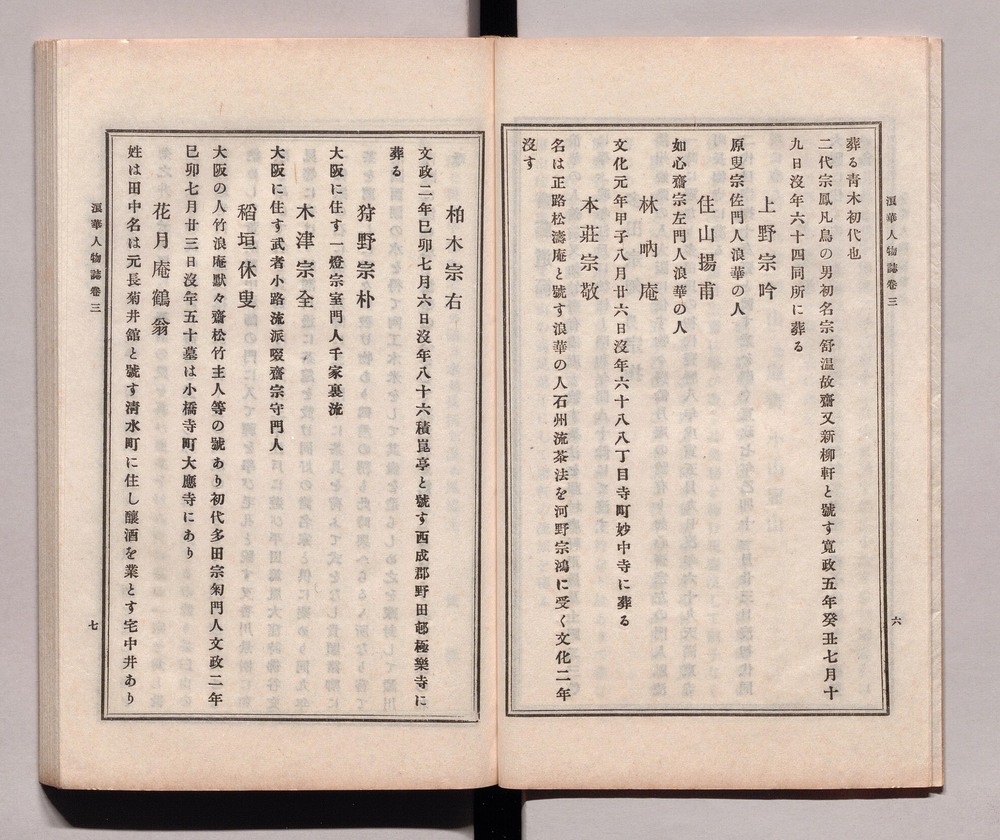 浪華人物誌卷三
六
葬る青木初代也
二代宗鳳凡鳥の男初名宗舒溫故齋又新柳軒と號す寬政五年癸丑七月十
九日沒年六十四同所に葬る
上野宗吟
原叟宗佐門人浪華の人
住山揚甫
如心齋宗左門人浪華の人
林吶庵
文化元年甲子八月廿六日沒年六十八八丁目寺町妙中寺に葬る
本莊宗敬
名は正路松濤庵と號す浪華の人石州流茶法を河野宗鴻に受く文化二年
沒す
柏木宗右
文政二年已卯七月六日沒年八十六積崑亭と號す西成郡野田邨極樂寺に
葬る
狩野宗朴
大阪に住す一燈宗室門人千家裏流
木津宗全
大阪に住す武者小路流派啜齋宗守門人
稻垣休叟
大阪の人竹浪庵默々齋松竹主人等の號あり初代多田宗菊門人文政二年
已卯七月廿三日沒年五十墓は小橋寺町大應寺にあり
花月庵鶴翁
姓は田中名は元長菊井館と號す淸水町に住し釀酒を業とす宅中井あり
浪華人物誌卷三
七